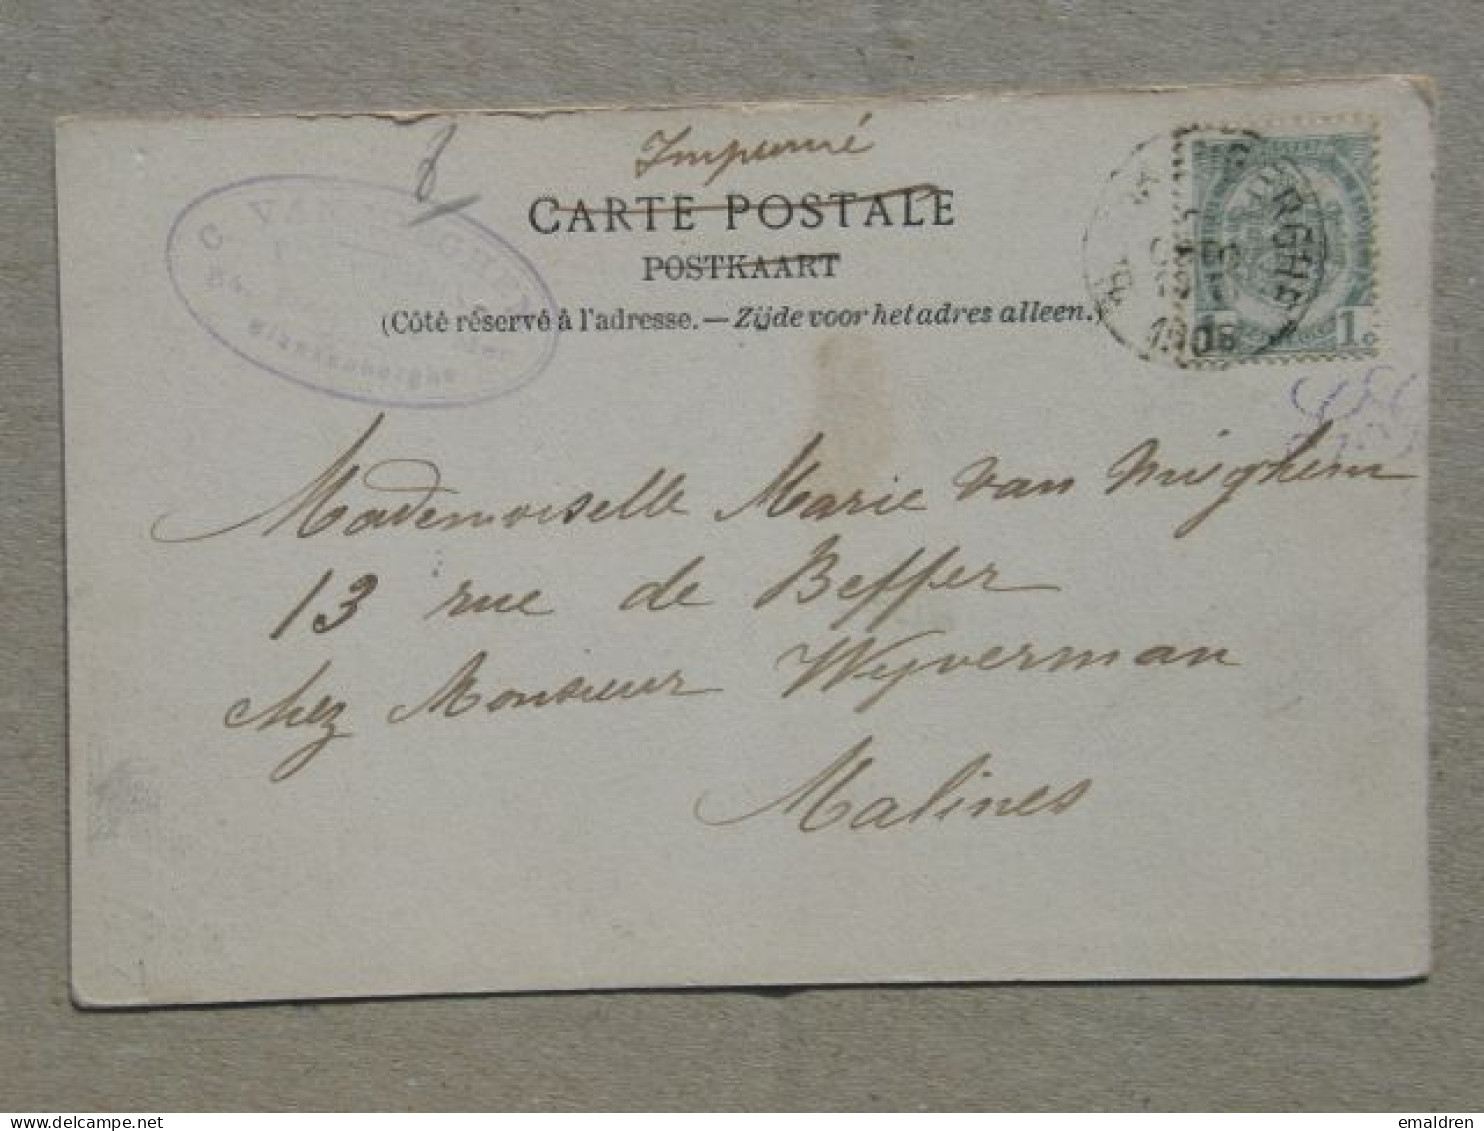 Imprimé
CARTE POSTALE
POSTKAART
(Côté réservé à l'adresse. — Zijde voor het adres alleen.)
C. VAN
Blankenberghe
1905
1 c
Mademoiselle Marie van Mieghem
13 rue de Beffer
chez Monsieur Wijverman
Malines
delcampe.net
emaldren